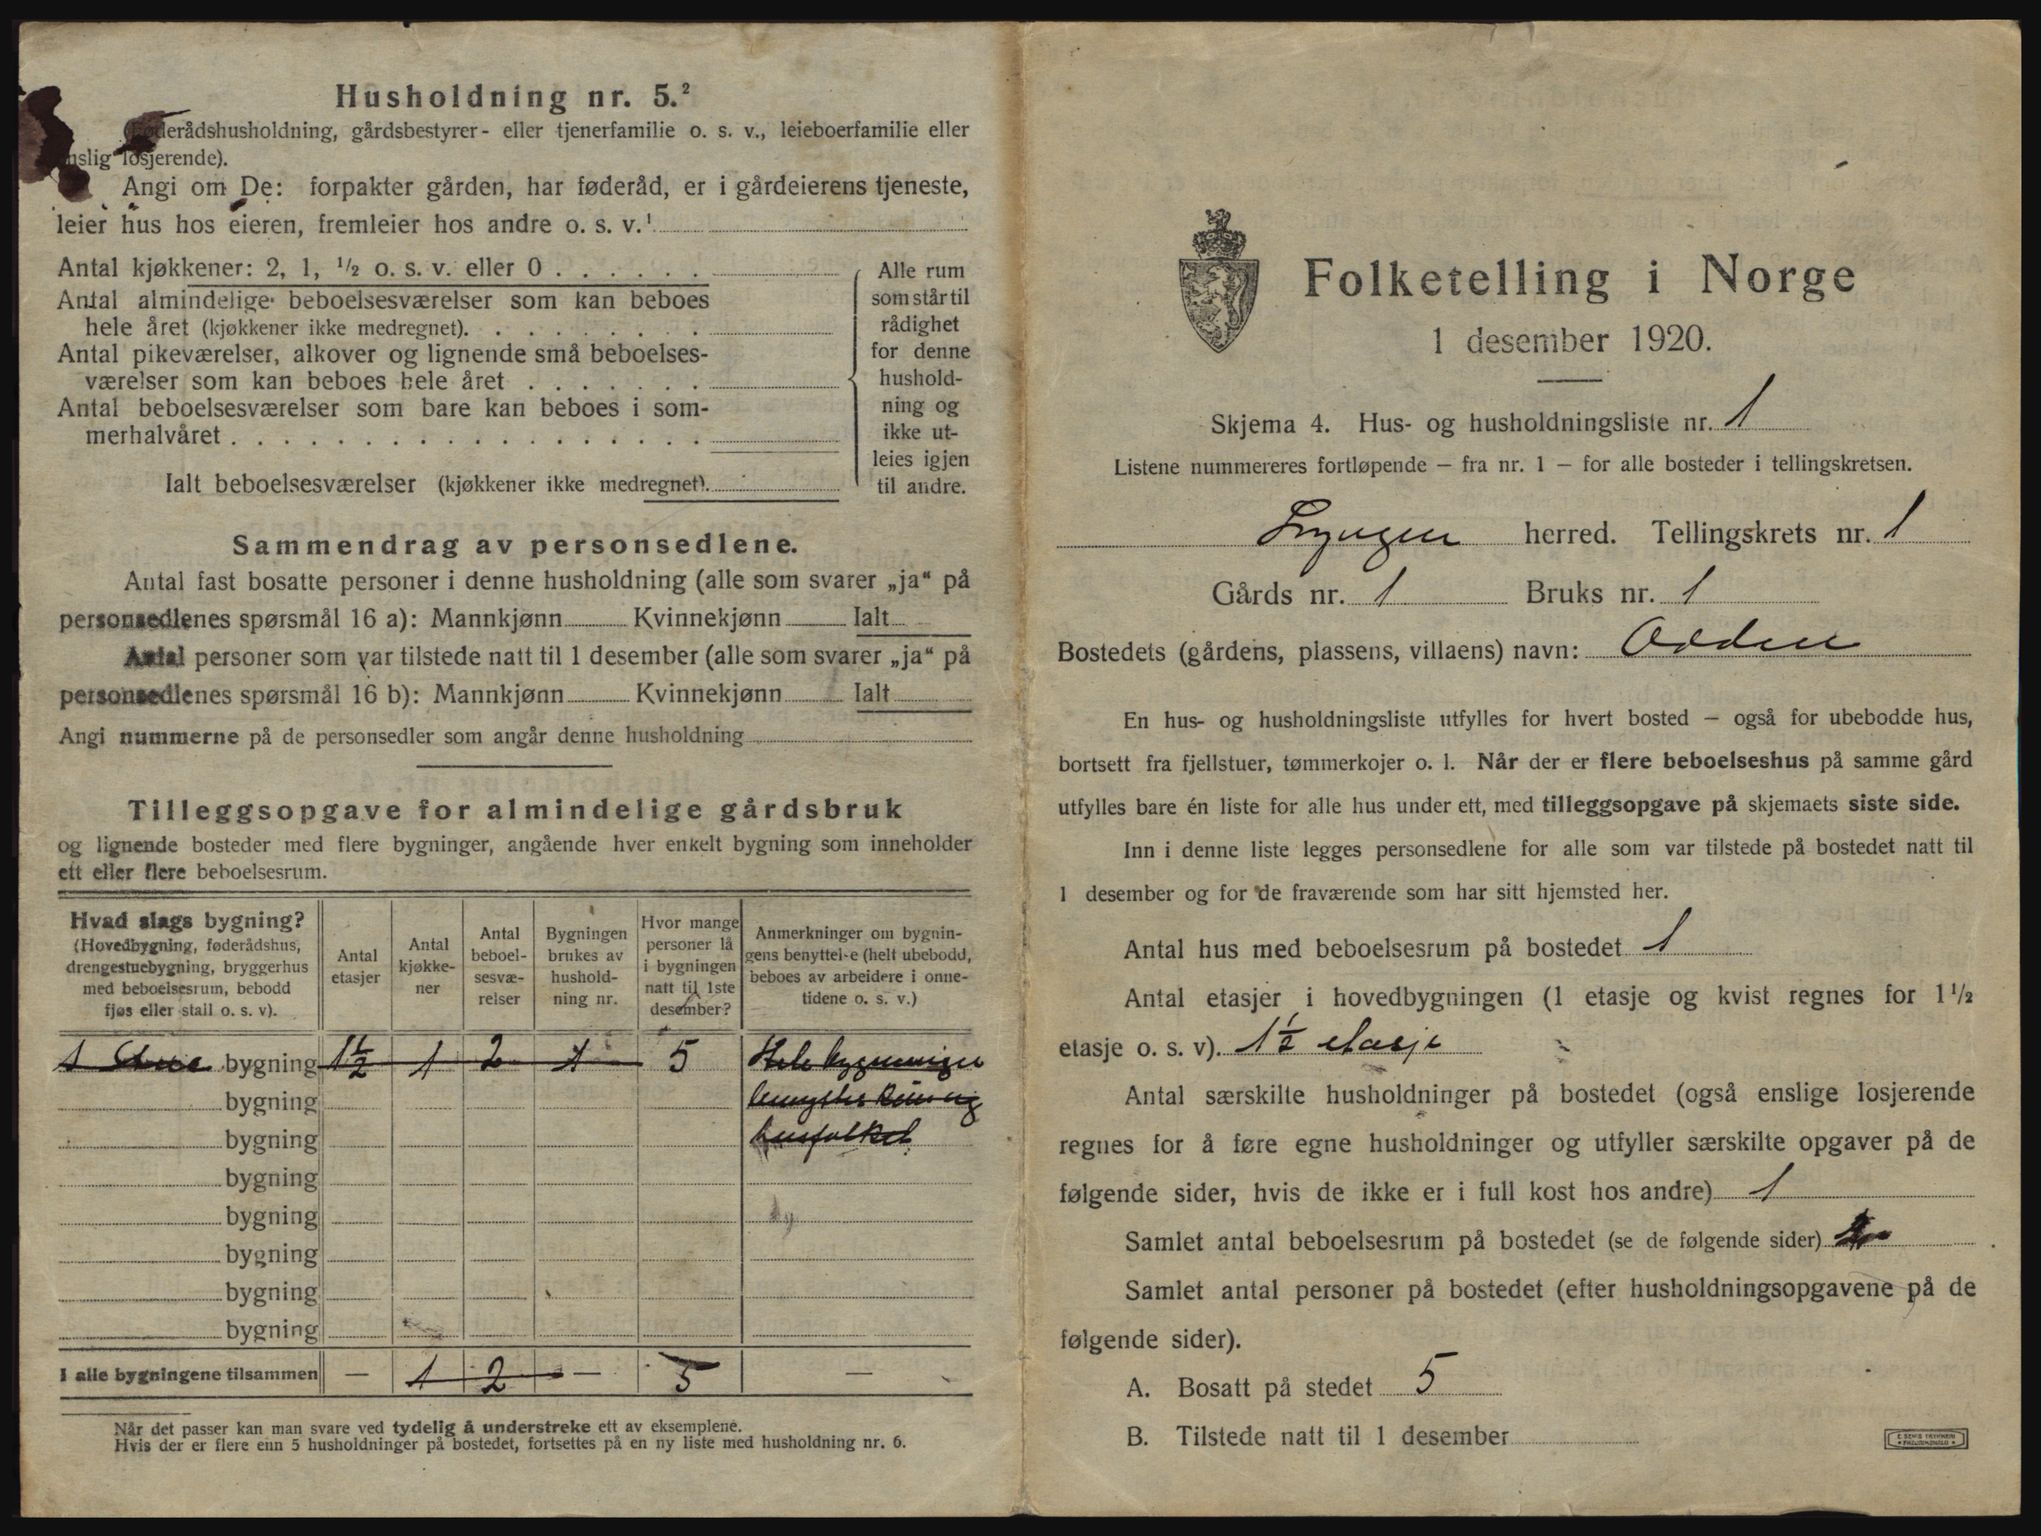 Husholdning nr. 5.²
(Føderådshusholdning, gårdsbestyrer- eller tjenerfamilie o. s. v., leieboerfamilie eller
enslig losjerende).
Angi om De: forpakter gården, har føderåd, er i gårdeierens tjeneste,
leier hus hos eieren, fremleier hos andre o. s. v.¹
Antal kjøkkener: 2, 1, ½ o. s. v. eller 0 . . . . . .
Antal almindelige beboelsesværelser som kan beboes
hele året (kjøkkener ikke medregnet). . . . . . . . .
Antal pikeværelser, alkover og lignende små beboelses-
værelser som kan beboes hele året . . . . . . .
Antal beboelsesværelser som bare kan beboes i som-
merhalvåret . . . . . . . . . . . . . . . . . .
Ialt beboelsesværelser (kjøkkener ikke medregnet).
Alle rum
som står til
rådighet
for denne
hushold-
ning og
ikke ut-
leies igjen
til andre.
Sammendrag av personsedlene.
Antal fast bosatte personer i denne husholdning (alle som svarer „ja“ på
personsedlenes spørsmål 16 a): Mannkjønn Kvinnekjønn Ialt
Antal personer som var tilstede natt til 1 desember (alle som svarer „ja“ på
personsedlenes spørsmål 16 b): Mannkjønn Kvinnekjønn Ialt
Angi nummerne på de personsedler som angår denne husholdning
Tilleggsopgave for almindelige gårdsbruk
og lignende bosteder med flere bygninger, angående hver enkelt bygning som inneholder
ett eller flere beboelsesrum.
Hvad slags bygning?
(Hovedbygning, føderådshus,
drengestuebygning, bryggerhus
med beboelsesrum, bebodd
fjøs eller stall o. s. v).
Antal
etasjer
Antal
kjøkke-
ner
Antal
beboel-
sesvæ-
relser
Bygningen
brukes av
hushold-
ning nr.
Hvor mange
personer lå
i bygningen
natt til 1ste
desember?
Anmerkninger om bygnin-
gens benyttelse (helt ubebodd,
beboes av arbeidere i onne-
tidene o. s. v.)
1 Stue bygning 1½ 1 2 1 5 Hele bygningen
bygning
bygning husfolket
bygning
bygning
bygning
bygning
bygning
I alle bygningene tilsammen — 1 2 — 5 —
Når det passer kan man svare ved tydelig å understreke ett av eksemplene.
Hvis der er flere enn 5 husholdninger på bostedet, fortsettes på en ny liste med husholdning nr. 6.
Folketelling i Norge
1 desember 1920.
Skjema 4. Hus- og husholdningsliste nr. 1
Listene nummereres fortløpende — fra nr. 1 — for alle bosteder i tellingskretsen.
Lyngen herred. Tellingskrets nr. 1
Gårds nr. 1 Bruks nr. 1
Bostedets (gårdens, plassens, villaens) navn: Odden
En hus- og husholdningsliste utfylles for hvert bosted — også for ubebodde hus,
bortsett fra fjellstuer, tømmerkojer o. l. Når der er flere beboelseshus på samme gård
utfylles bare én liste for alle hus under ett, med tilleggsopgave på skjemaets siste side.
Inn i denne liste legges personsedlene for alle som var tilstede på bostedet natt til
1 desember og for de fraværende som har sitt hjemsted her.
Antal hus med beboelsesrum på bostedet 1
Antal etasjer i hovedbygningen (1 etasje og kvist regnes for 1½
etasje o. s. v). 1½ etasje
Antal særskilte husholdninger på bostedet (også enslige losjerende
regnes for å føre egne husholdninger og utfyller særskilte opgaver på de
følgende sider, hvis de ikke er i full kost hos andre) 1
Samlet antal beboelsesrum på bostedet (se de følgende sider)
Samlet antal personer på bostedet (efter husholdningsopgavene på de
følgende sider).
A. Bosatt på stedet 5
B. Tilstede natt til 1 desember